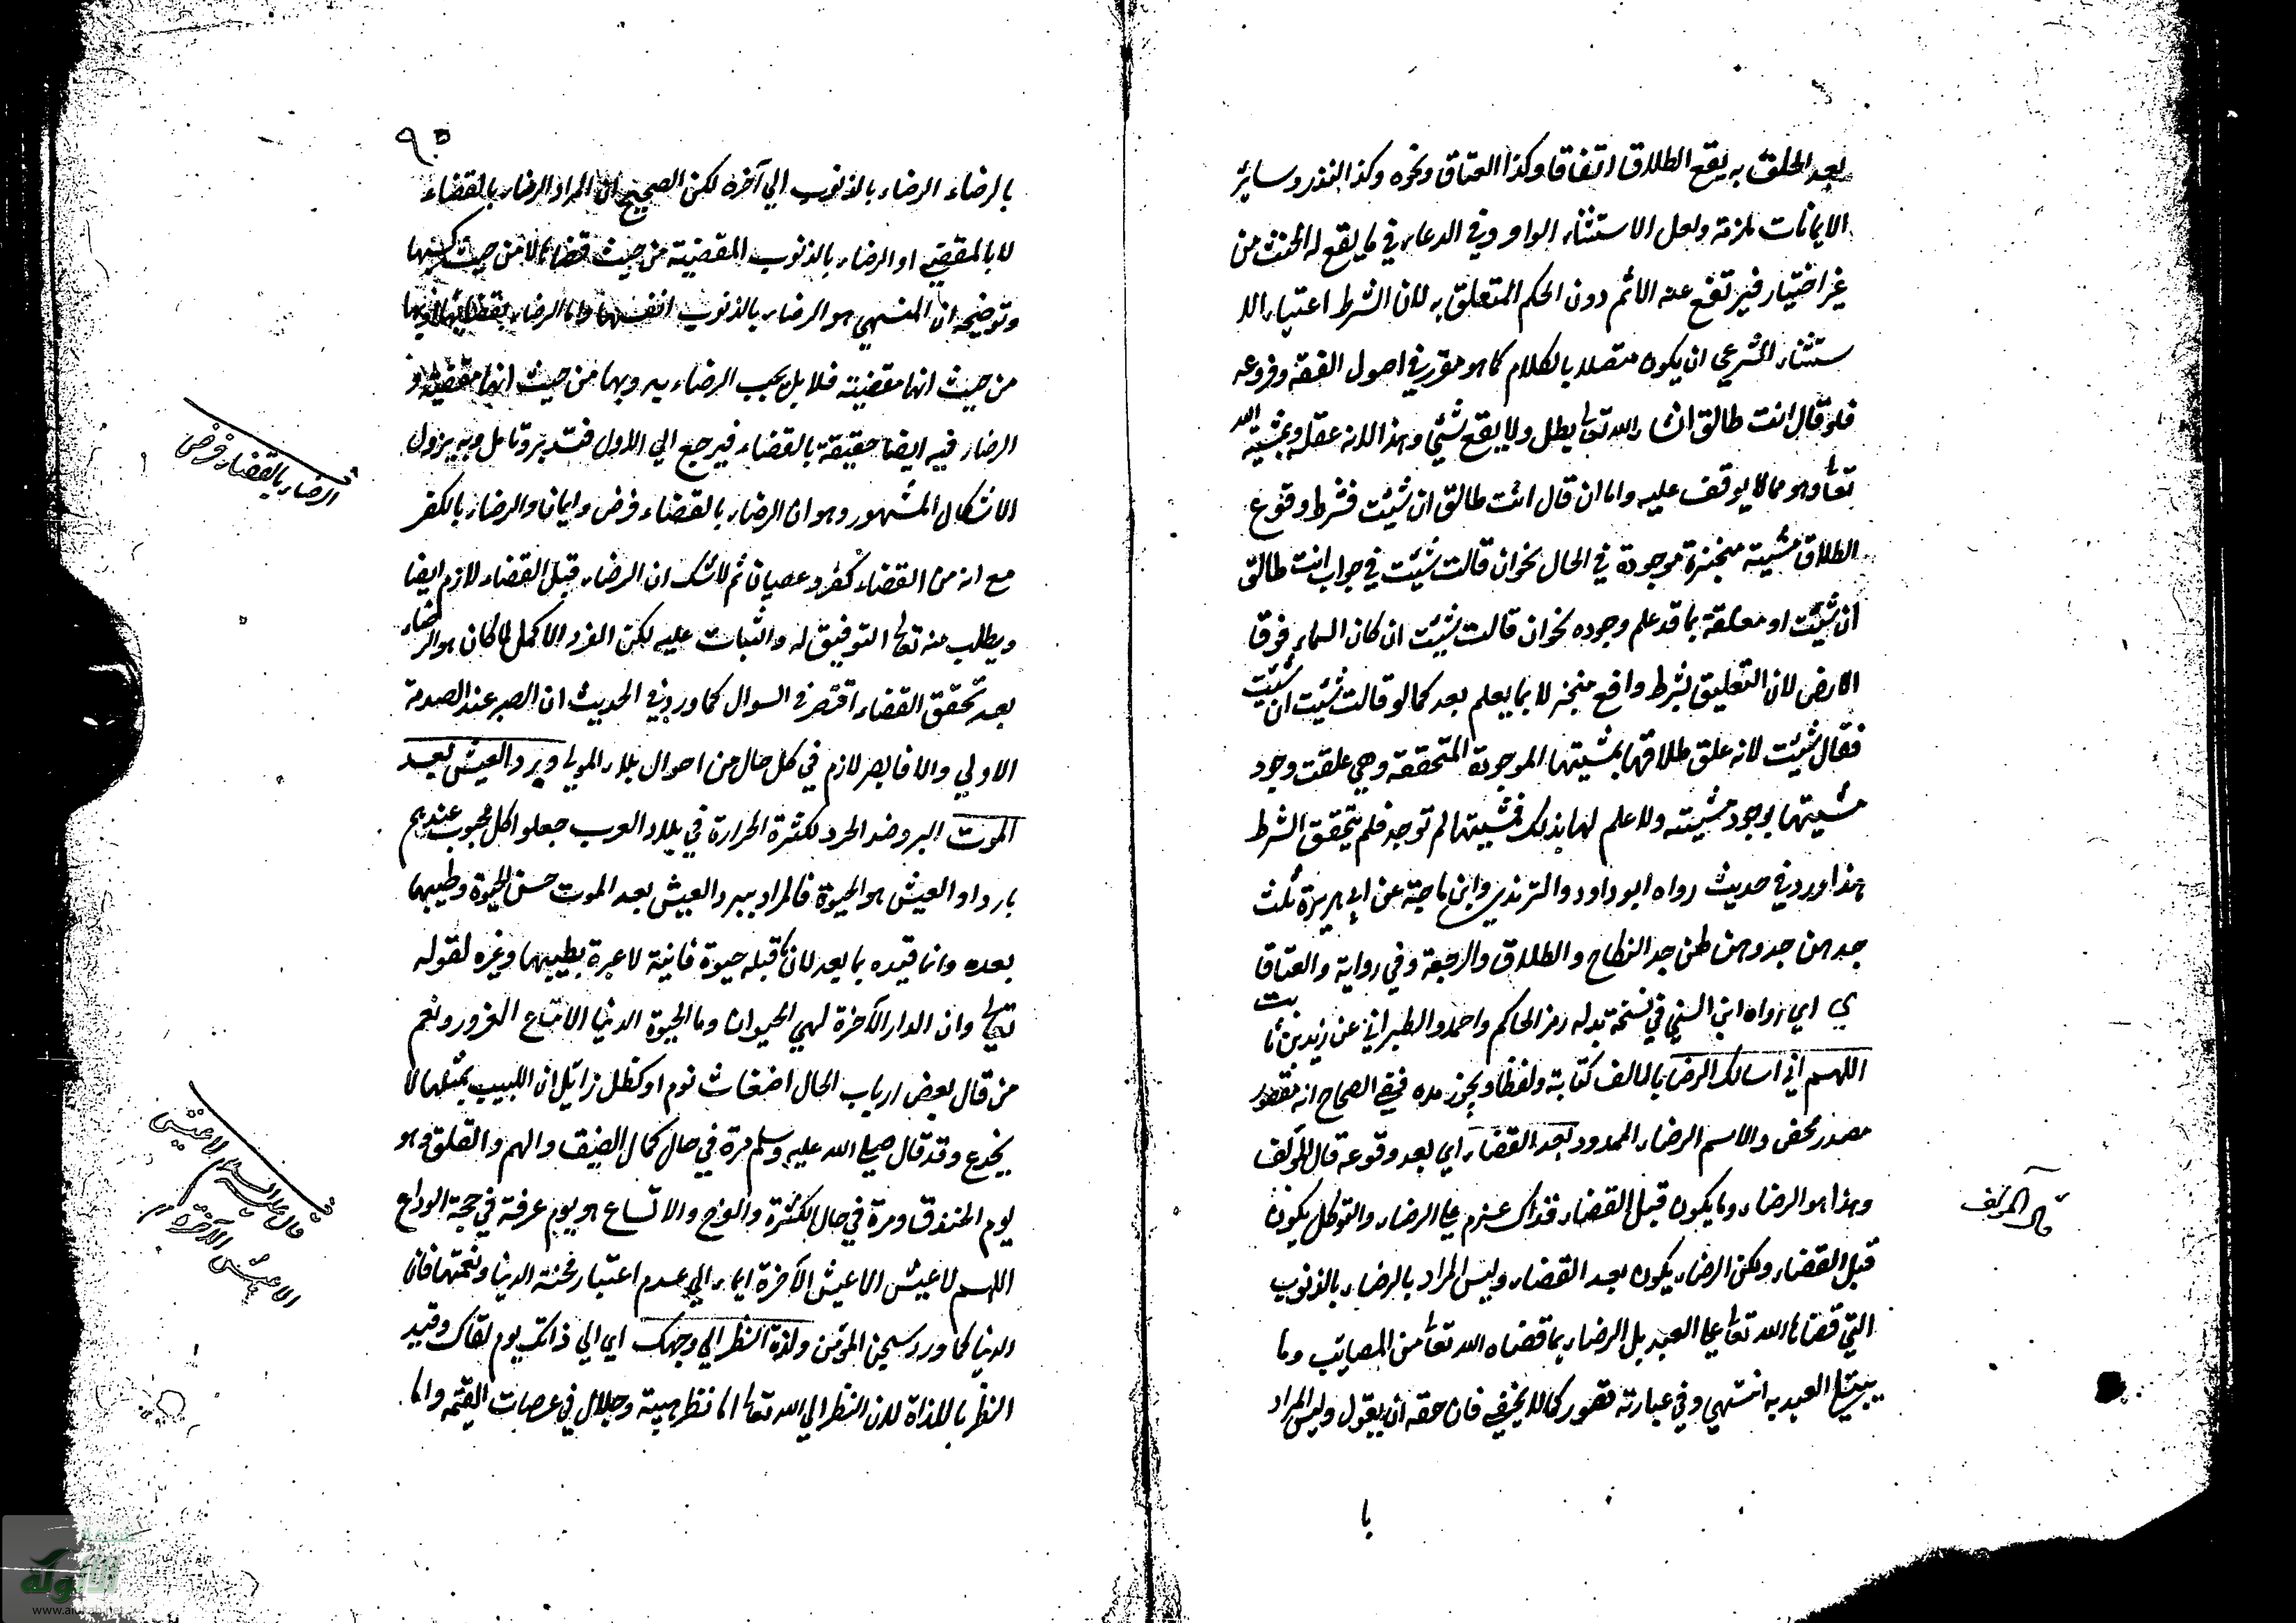 بعد الحلف به يقع الطلاق اتفاقا وكذا العتاق ونحوه وكذا النذر وسائر
الايمانات ملزمة ولعل الاستثناء الوارد في الدعاء في ما يقع له الحنث من
غير اختيار فيرتفع عنه الاثم دون الحكم المتعلق به لان الشرط اعتبار الا
ستثناء الشرعي ان يكون متصلا بالكلام كما هو مقرر في اصول الفقه وفروعه
فلو قال انت طالق ان شاء الله تعالى يطل ولا يقع شيء وهذا لانه علقه بمشية الله
تعالى وهو مما لا يوقف عليه واما ان قال انت طالق ان شئت فشرط وقوع
الطلاق مشية منجزة موجودة في الحال نحو ان قالت شئت في جواب انت طالق
ان شئت او معلقة بما قد علم وجوده نحو ان قالت شئت ان كان السماء فوقا
الارض لان التعليق بشرط واقع منجز لا بما يعلم بعد كما لو قالت شئت ان شئت
فقال شئت لانه علق طلاقها بمشيتها الموجودة المتحققة وهي علقت وجود
مشيتها بوجود مشيته ولا علم لها بذلك فمشيتها لم توجد فلم يتحقق الشرط
هذا ورد في حديث رواه ابو داود والترمذي وابن ماجة عن ابي هريرة ثلث
جدهن جد وهزلهن جد النكاح والطلاق والرجعة وفي رواية والعتاقا
ي اي رواه ابن السني في نسخة بدله رمز الحاكم واحمد والطبراني عن زيد بن ثابت
اللهم اني اسالك الرضا بالالف كتابة ولفظا ويجوز مده ففي الصحاح انه مقصور
مصدر محض والاسم الرضاء الممدود بعد القضاء اي بعد وقوعه قال المؤلف
وهذا هو الرضاء وما يكون قبل القضاء فذاك عزم على الرضاء والتوكل يكون
قبل القضاء ولكن الرضاء يكون بعد القضاء وليس المراد بالرضاء بالذنوب
التي قضاها الله تعالى على العبد بل الرضاء بما قضاه الله تعالى من المصائب وما
يبتلي العبد به انتهي وفي عبارته قصور كما لا يخفي فان حقه ان يقول وليس المراد
با
قال المؤلف
٩٥
بالرضاء الرضاء بالذنوب الي آخره لكن الصحيح ان المراد الرضاء بالقضاء
لا بالمقضي او الرضاء بالذنوب المقضية من حيث قضائها لا من حيث كسبها
وتوضيحه ان المنهي هو الرضاء بالذنوب انفسها واما الرضاء بقضائها او بها
من حيث انها مقضية فلا بل يجب الرضاء به وبها من حيث انها مقضية و
الرضاء فيه ايضا حقيقة بالقضاء فيرجع الي الاول فتدبر وتامل وبه يزول
الاشكال المشهور وهو ان الرضاء بالقضاء فرض وايمان والرضاء بالكفر
مع انه من القضاء كفر وعصيان ثم لا شك ان الرضاء قبل القضاء لازم ايضا
ويطلب منه تعالى التوفيق له والثبات عليه لكن الفرد الاكمل لما كان هو الرضاء
بعد تحقق القضاء اقتصر في السوال كما ورد في الحديث ان الصبر عند الصدمة
الاولي والا فالصبر لازم في كل حال من احوال بلاء المولى وبرد العيش بعد
الموت البرد ضد الحرد لكثرة الحرارة في بلاد العرب جعلوا كل محبوب عندهم
باردا والعيش هو الحيوة فالمراد ببرد العيش بعد الموت حسن الحيوة وطيبها
بعده وانما قيده بما بعد لان ما قبله حيوة فانية لا عبرة بطيبها وغيره لقوله
تعالى وان الدار الآخرة لهي الحيوان وما الحيوة الدنيا الا متاع الغرور ونعم
من قال بعض ارباب الحال اضغاث نوم او كظل زائل ان اللبيب بمثلها لا
يخدع وقد قال صلى الله عليه وسلم مرة في حال كمال الضيق والهم والقلق وهو
يوم الخندق ومرة في حال الكثرة والفرح والاتساع هو يوم عرفة في حجة الوداع
اللهم لا عيش الا عيش الآخرة ايماء الي عدم اعتبار محنة الدنيا ونعمتها فان
الدنيا كما ورد سجن المؤمن ولذة النظر الي وجهك اي الي ذاتك يوم لقاك وقيد
النظر باللذاة لان النظر الي الله تعالى اما نظر هيبة وجلال في عرصات القيمة واما
الرضاء بالقضاء فرض
قال عليه السلام لا عيش
الا عيش الآخرة
الألوكة